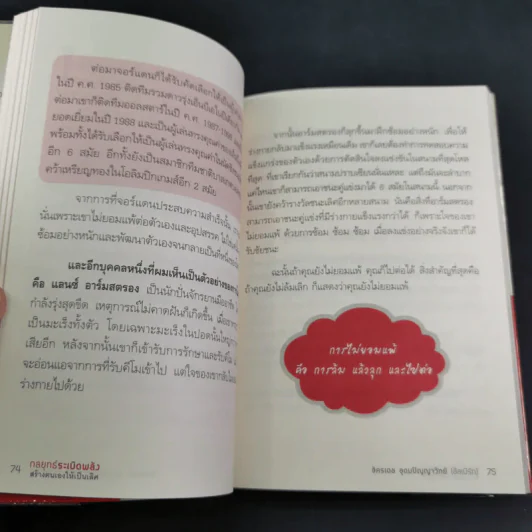 ต่อมาจอร์แดนก็ได้รับคัดเลือกให้เป็น
ในปี ค.ศ. 1985 ติดทีมรวมดาวรุ่งเอ็นบีเอ
ต่อมาเขาก็ติดทีมออลสตาร์ในปี ค.ศ. 1987-
ยอดเยี่ยมในปี 1988 และเป็นผู้เล่นทรงคุณค่า
พร้อมทั้งได้รับเลือกให้เป็นผู้เล่นทรงคุณค่า
อีก 6 สมัย อีกทั้งยังเป็นสมาชิกทีมชาติ
คว้าเหรียญทองในโอลิมปิกเกมส์อีก 2 สมัย
จากการที่จอร์แดนประสบความสำเร็จนั้น
นั่นเพราะเขาไม่ยอมแพ้ต่อตัวเองและอุปสรรค
ซ้อมอย่างหนักและพัฒนาตัวเองจนกลายเป็น
และอีกบุคคลหนึ่งที่ผมเห็นเป็นตัวอย่าง
คือ แลนซ์ อาร์มสตรอง เป็นนักปั่นจักรยาน
กำลังรุ่งสุดขีด เหตุการณ์ไม่คาดฝันก็เกิดขึ้น
เป็นมะเร็งทั้งตัว โดยเฉพาะมะเร็งในปอดนั้น
เสียอีก หลังจากนั้นเขาก็เข้ารับการรักษาและรับคีโม
จะอ่อนแอจากการที่รับคีโมเข้าไป แต่ใจของเขากลับ
ร่างกายไปด้วย
74 กลยุทธ์ระเบิดพลัง
สร้างตนเองให้เป็นเลิศ
จากนั้นอาร์มสตรองก็ลุกขึ้นมาฝึกซ้อมอย่างหนัก เพื่อให้
ร่างกายกลับมาแข็งแรงเหมือนเดิม เขาก็ต้องทำการทดสอบความ
แข็งแกร่งของตัวเองด้วยการตัดสินใจลงแข่งขันในสนามที่สุดโหด
ที่สุด ที่เขาเรียกกันว่าสนามปราบเซียนนั่นแหละ แต่ถึงมันจะลำบาก
แค่ไหนเขาก็สามารถเอาชนะคู่แข่งมาได้ 6 สมัยในสนามนี้ นอกจาก
นั้นเขายังคว้ารางวัลชนะเลิศอีกหลายสนาม นั่นคือสิ่งที่อาร์มสตรอง
สามารถเอาชนะคู่แข่งที่มีร่างกายแข็งแรงกว่าได้ ก็เพราะใจของเขา
ไม่ยอมแพ้ ด้วยการซ้อม ซ้อม ซ้อม เมื่อลงแข่งอย่างจริงจังเขาก็ได้
รับชัยชนะ
ฉะนั้นถ้าคุณยังไม่ยอมแพ้ คุณก็ไปต่อได้ สิ่งสำคัญที่สุดคือ
ถ้าคุณยังไม่ล้มเลิก ก็แสดงว่าคุณยังไม่ยอมแพ้
การไม่ยอมแพ้
คือ การล้ม แล้วลุก และไปต่อ
จิตรเดล อุดมปัญญาวิทย์ 75